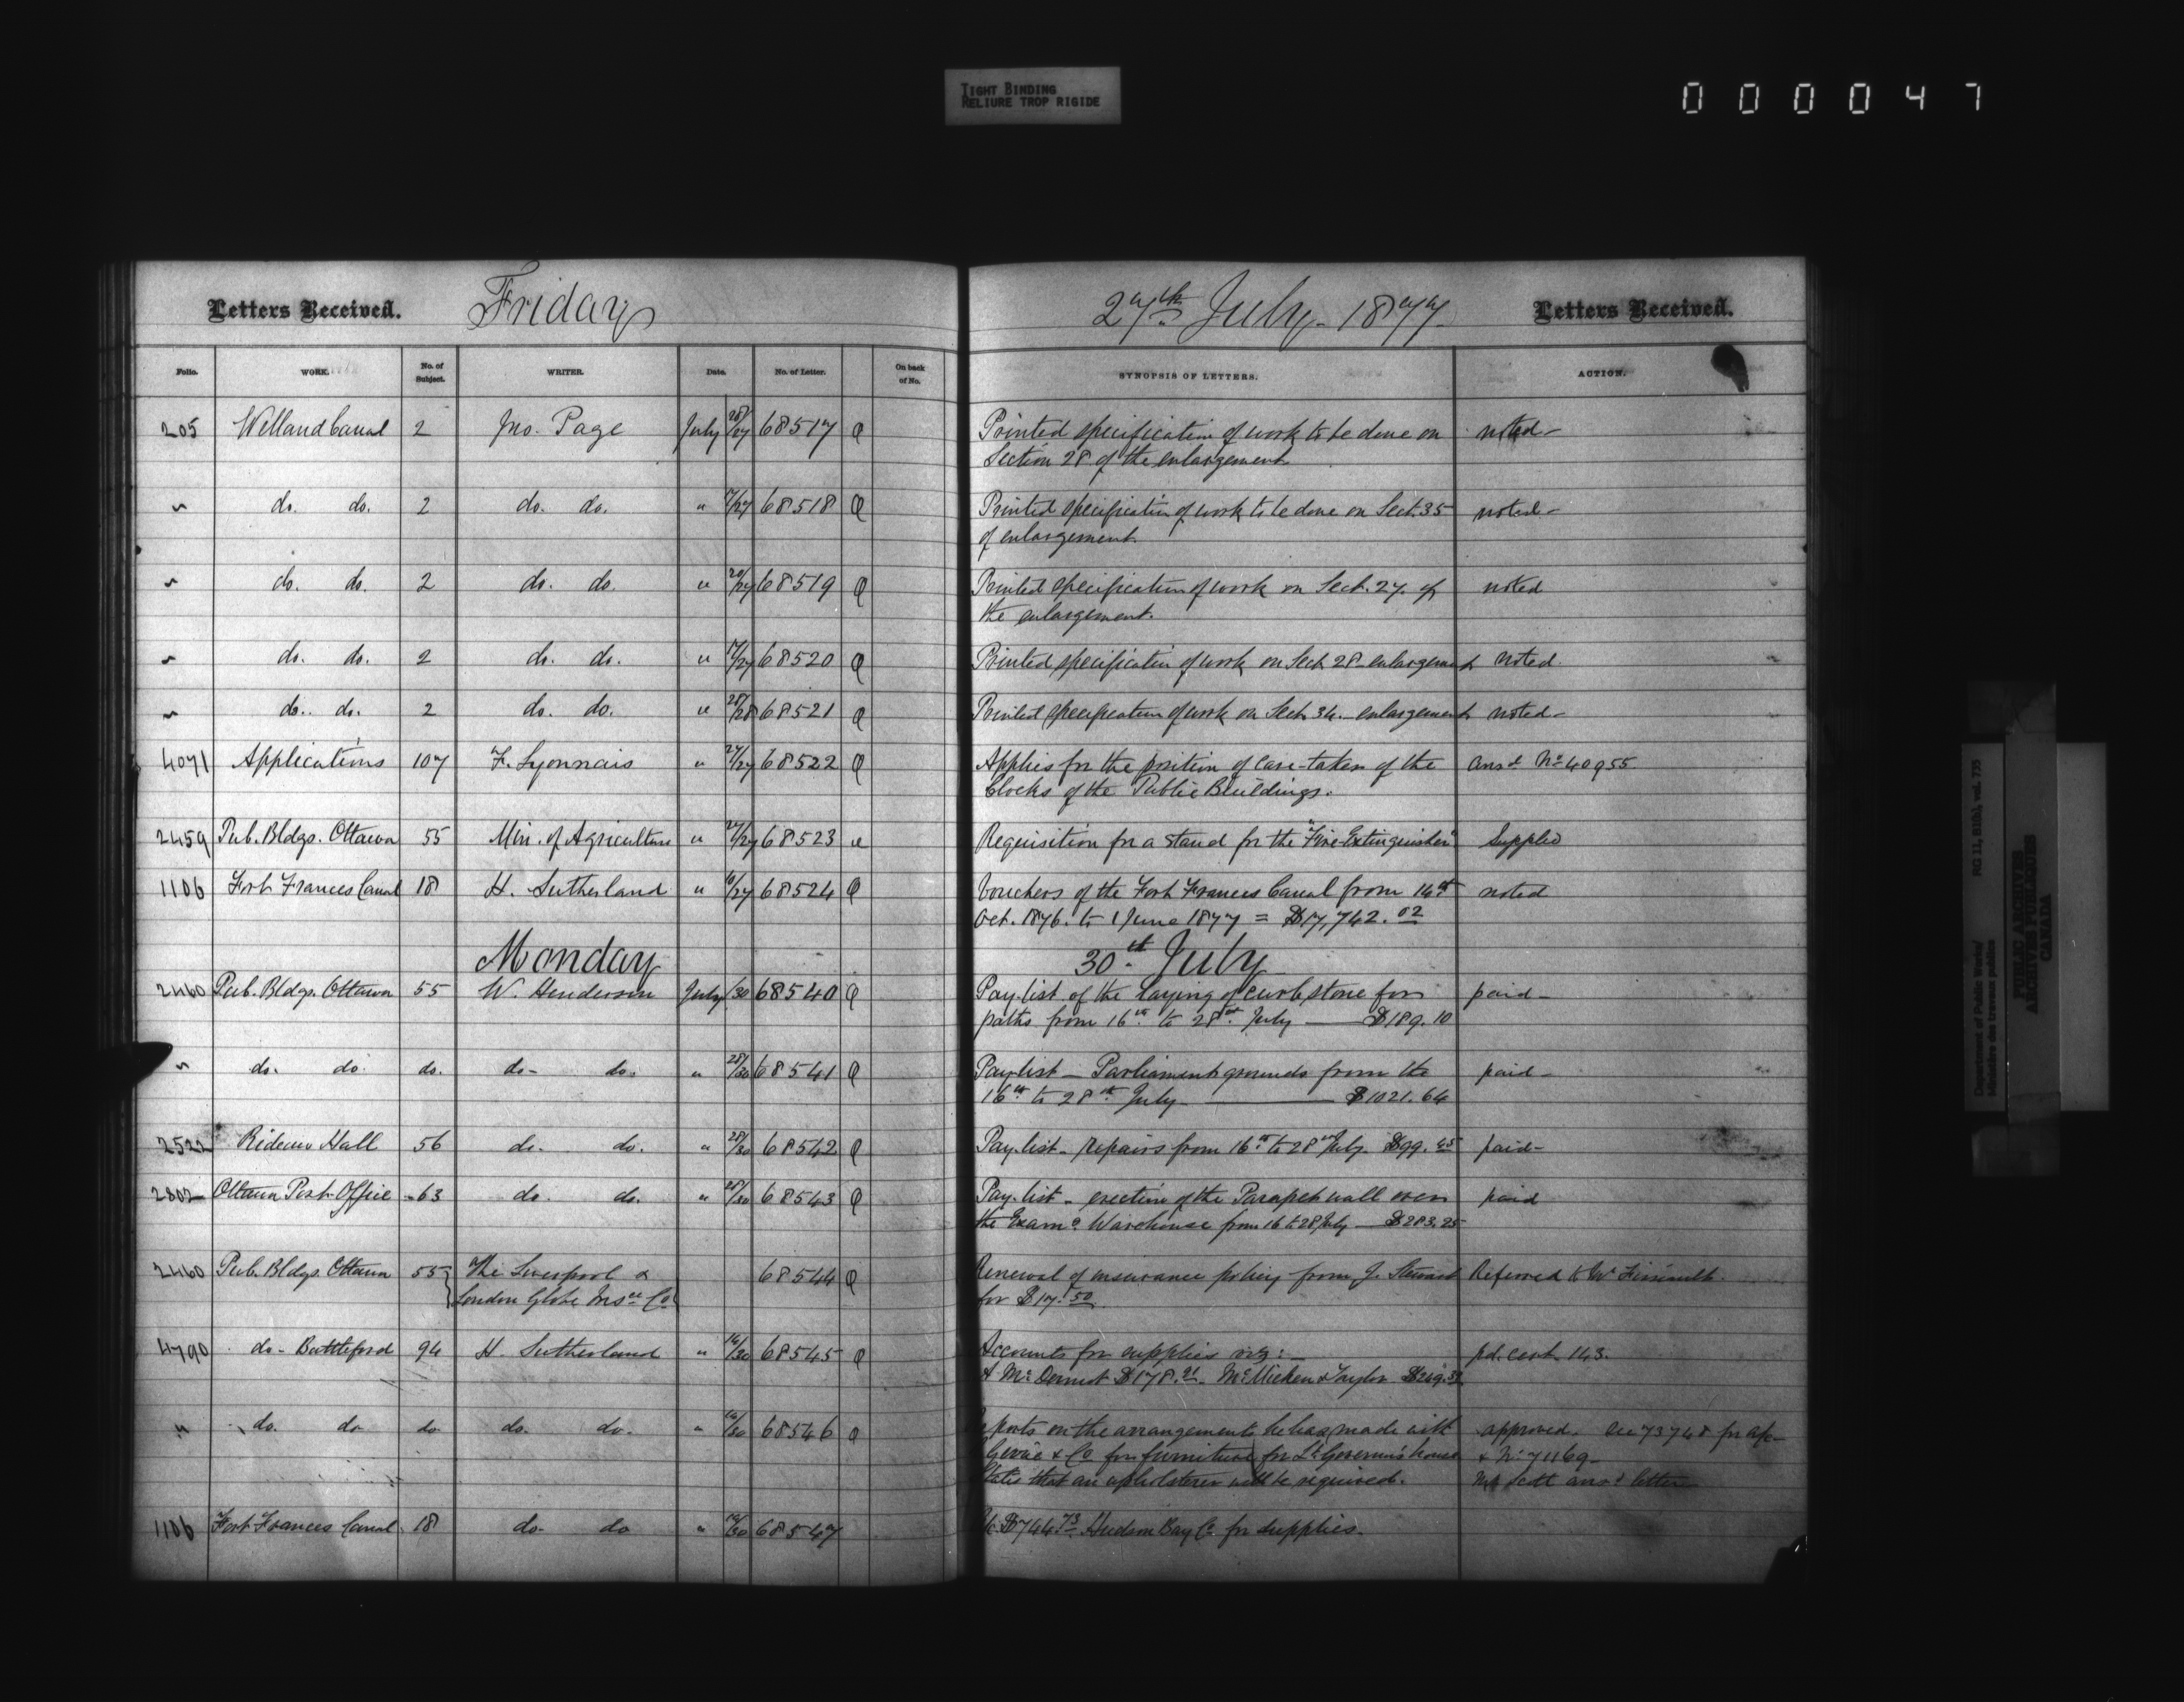 TIGHT BINDING
RELIURE TROP RIGIDE
000047
Letters Received. Friday 27th July 1877 Letters Received.
Folio. WORK. No. of Subject. WRITER. Date. No. of Letter. On back of No. SYNOPSIS OF LETTERS. ACTION.
205 Welland Canal 2 Jno. Page July 68517 Printed specification of work to be done on noted
Section 28 of the enlargement
" do. do. 2 do. do. " 68518 Printed specification of work to be done on Sect. 35 noted
of enlargement.
" do. do. 2 do. do. " 20/27 68519 Printed specification of work on Sect. 27. of noted
the enlargement.
" do. do. 2 do. do. " 68520 Printed specification of work on Sect. 28 enlargement noted.
" do. do. 2 do. do. " 68521 Printed specification of work on Sect. 34. enlargement noted
4071 Applications 107 F. Lyonnais " 27/27 68522 Applies for the position of care-taker of the Ansd. No 40955.
Clocks of the Public Buildings.
2459 Pub. Bldgs. Ottawa 55 Min. of Agriculture " 27/27 68523 Requisition for a stand for the "Fire-Extinguisher" Supplied
1106 Fort Frances Canal 18 H. Sutherland " 68524 Vouchers of the Fort Frances Canal from 14th noted
Oct. 1876. to 1 June 1877 = $17,742.02
Monday 30th July
2460 Pub. Bldgs. Ottawa 55 W. Henderson July /30 68540 Pay-list of the laying of curb stone for paid
paths from 16th to 28th July — $189.10
" do. do. do. do. do. " 28/30 68541 Pay-list — Parliament grounds from the paid
16th to 28th July — $1021.64
2522 Rideau Hall 56 do. do. " 28/30 68542 Pay-list - repairs from 16th to 28th July. $99.45 paid
2802 Ottawa Post-Office 63 do. do. " 28/30 68543 Pay-list - erection of the Parapet wall over paid
the Examg. Warehouse from 16 to 28 July — $283.25
2460 Pub. Bldgs. Ottawa 55 The Liverpool & 68544 Renewal of insurance policy from J. Stewart Referred to Mr
London Globe Insce. Co. for $17.50
4790 do - Battleford 94 H. Sutherland " 14/30 68545 Accounts for supplies viz: pd. cert. 143.
McDermot $178.21 McMicken & Taylor
" do. do. do. do. do. " 14/30 68546 on the arrangements he has made with approved. See 73748 for
& Co for furniture for Lt. Governor's house & No 71169
States that an upholsterer will be required. Scott ansd letter
1106 Fort Frances Canal 18 do. do " 14/30 68547 $744.73 Hudson Bay Co. for supplies.
Department of Public Works/
Ministère des travaux publics
RG 11, B1(b), vol. 735
PUBLIC ARCHIVES
ARCHIVES PUBLIQUES
CANADA